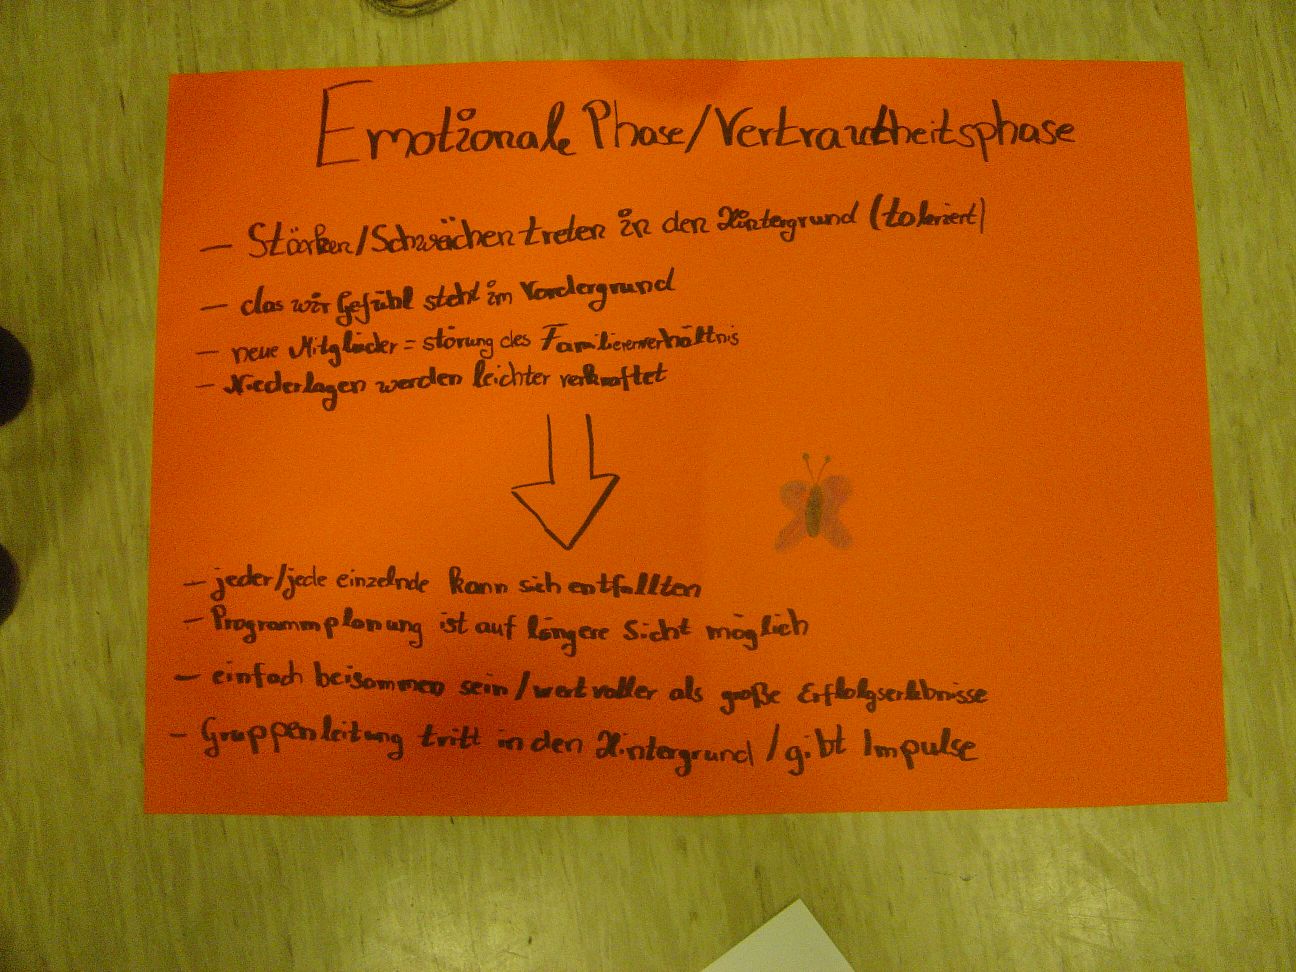 Emotionale Phase/Vertrautheitsphase
- Stärken/Schwächen treten in den Hintergrund (toleriert)
- das wir Gefühl steht im Vordergrund
- neue Mitglieder = störung des Familienverhältnis
- Niederlagen werden leichter verkraftet
- jeder/jede einzelnde kann sich entfallten
- Programmplanung ist auf längere Sicht möglich
- einfach beisammen sein/wertvoller als große Erfolgserlebnisse
- Gruppenleitung tritt in den Hintergrund/gibt Impulse